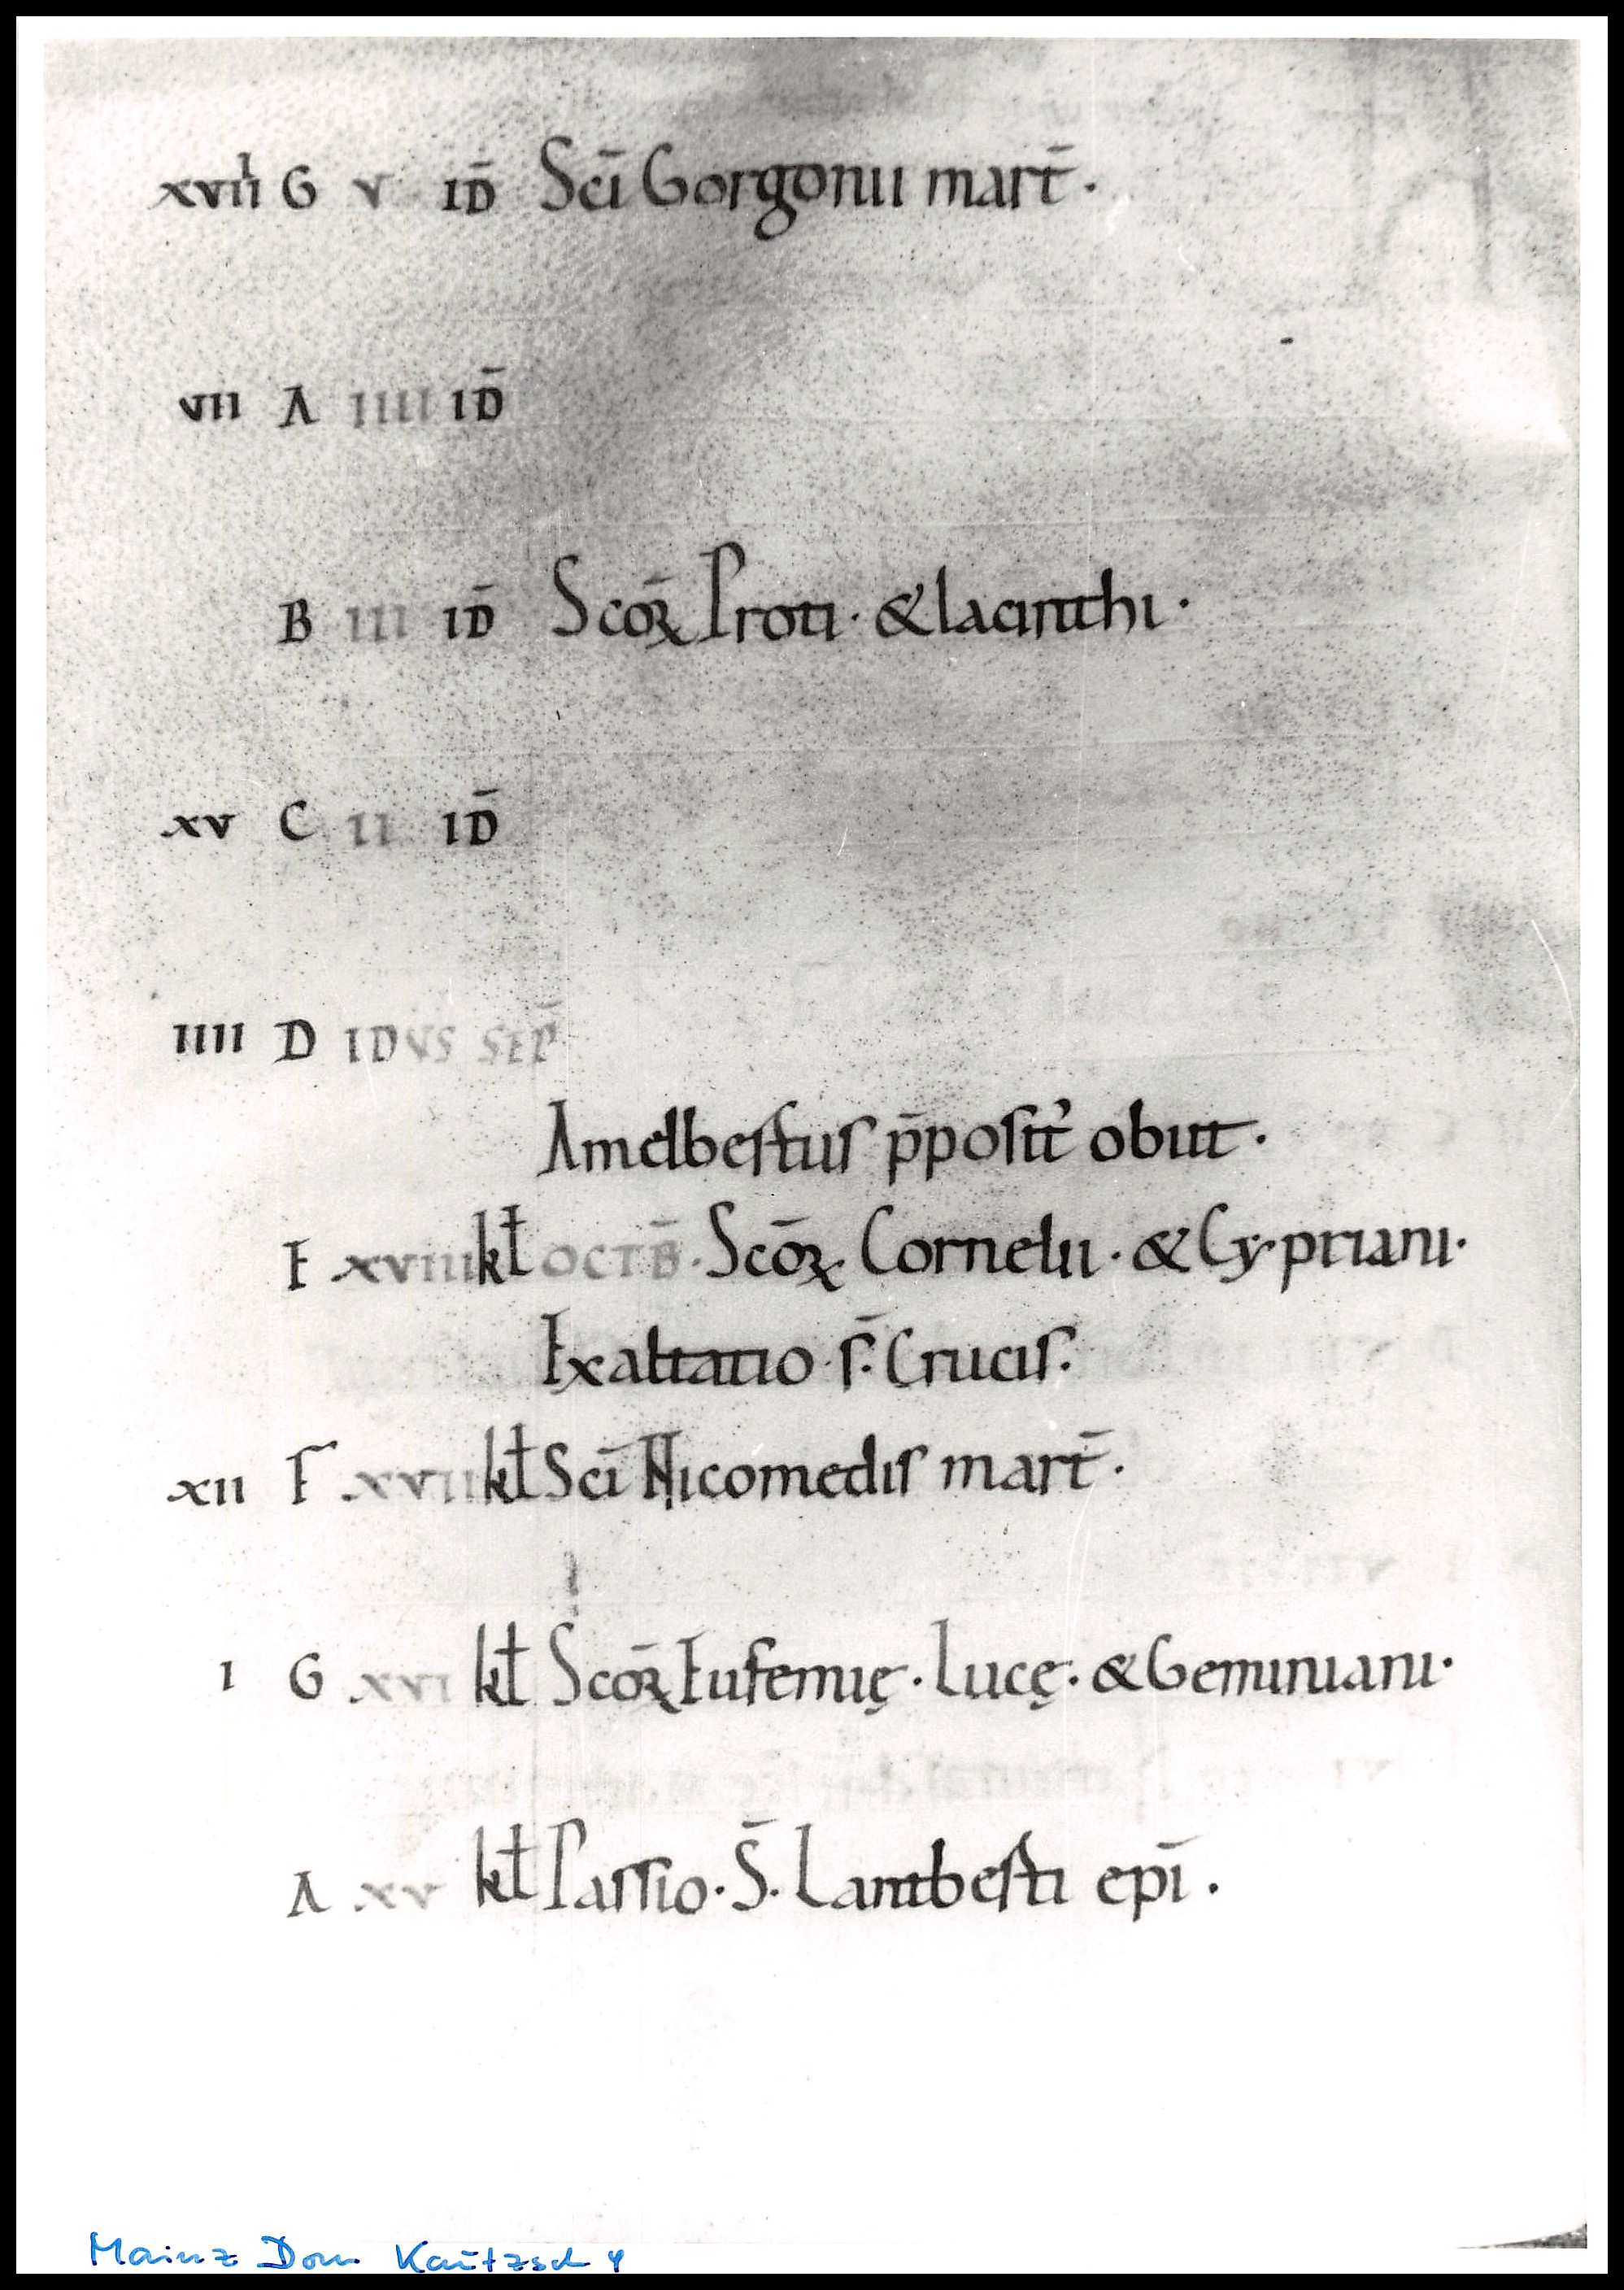 xvii G v ID̄ Scī Gorgonii mart̄.
vii A iiii ID̄
B iii ID̄ Scōꝝ Proti · & Iacinthi ·
xv C ii ID̄
iiii D IDVS SEP̄
Amelbertus p̄posit᾽ obiit ·
E xviii kł OCTB̄ · Scōꝝ Cornelii · & Cypriani ·
Exaltatio · s̄ · Crucis ·
xii F xvii kł Scī Nicomedis mart̄ ·
i G xvi kł Scōꝝ Eufemię · Lucę · & Geminiani ·
A xv kł Passio · S̄ · Lantberti epī ·
Mainz Dom Kautzsch 4